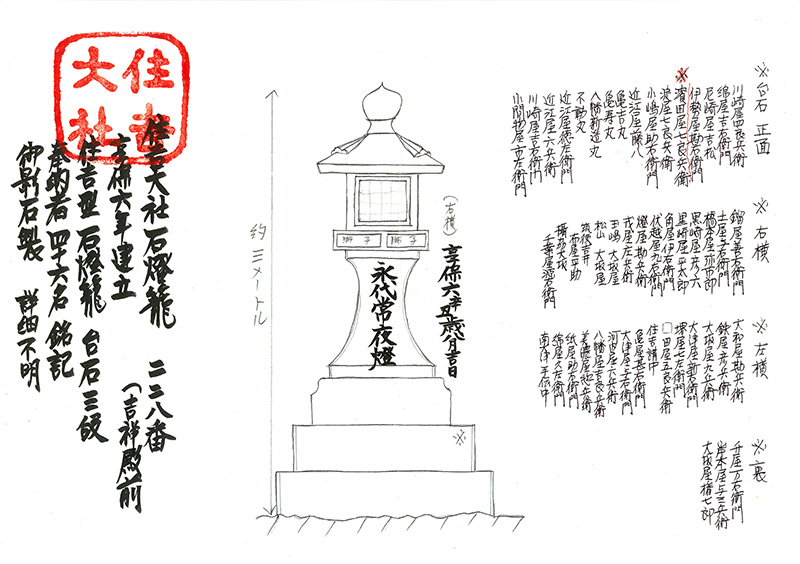 ※台石 正面
川崎屋四良兵衛
綿屋吉右衛門
尼崎屋吉松
伊勢屋勘右衛門
※濱田屋七良兵衛
淀屋七良兵衛
小嶋屋助右衛門
近江屋藤八
亀吉丸
亀寿丸
八幡新造丸
不動丸
近江屋徳左衛門
近江屋六兵衛
川崎屋吉右衛門
小間物屋市左衛門
※右横
錫屋善右衛門
土屋与右衛門
橋本屋弥市郎
黒崎屋彦六
里崎屋平太郎
角屋伊右衛門
伏越屋九右衛門
燈屋勘兵衛
戎屋左兵衛
玉嶋 大坂屋
松山 大坂屋
筑後吉井
布屋平助
大坂
千葉屋源右衛門
※左横
大和屋勘兵衛
鉄屋彦兵衛
大坂屋九兵衛
大津屋新右衛門
堺屋七左衛門
□田屋五良兵衛
住吉講中
亀屋甚右衛門
大津屋与右衛門
河内屋六兵衛
八幡屋吉良兵衛
美濃屋徳兵衛
紙屋助右衛門
綿屋久左衛門
南津手伝中
※裏
升屋万右衛門
岸本屋与三兵衛
大坂屋権七郎
(右横)
享保六辛丑歳八月吉日
獅子
獅子
永代常夜燈
※
約三メートル
住吉大社
住吉大社石燈籠 二二八番
(吉祥殿前
享保六年建立
住吉型石燈籠 台石三段
奉納者四十六名銘記
御影石製 詳細不明